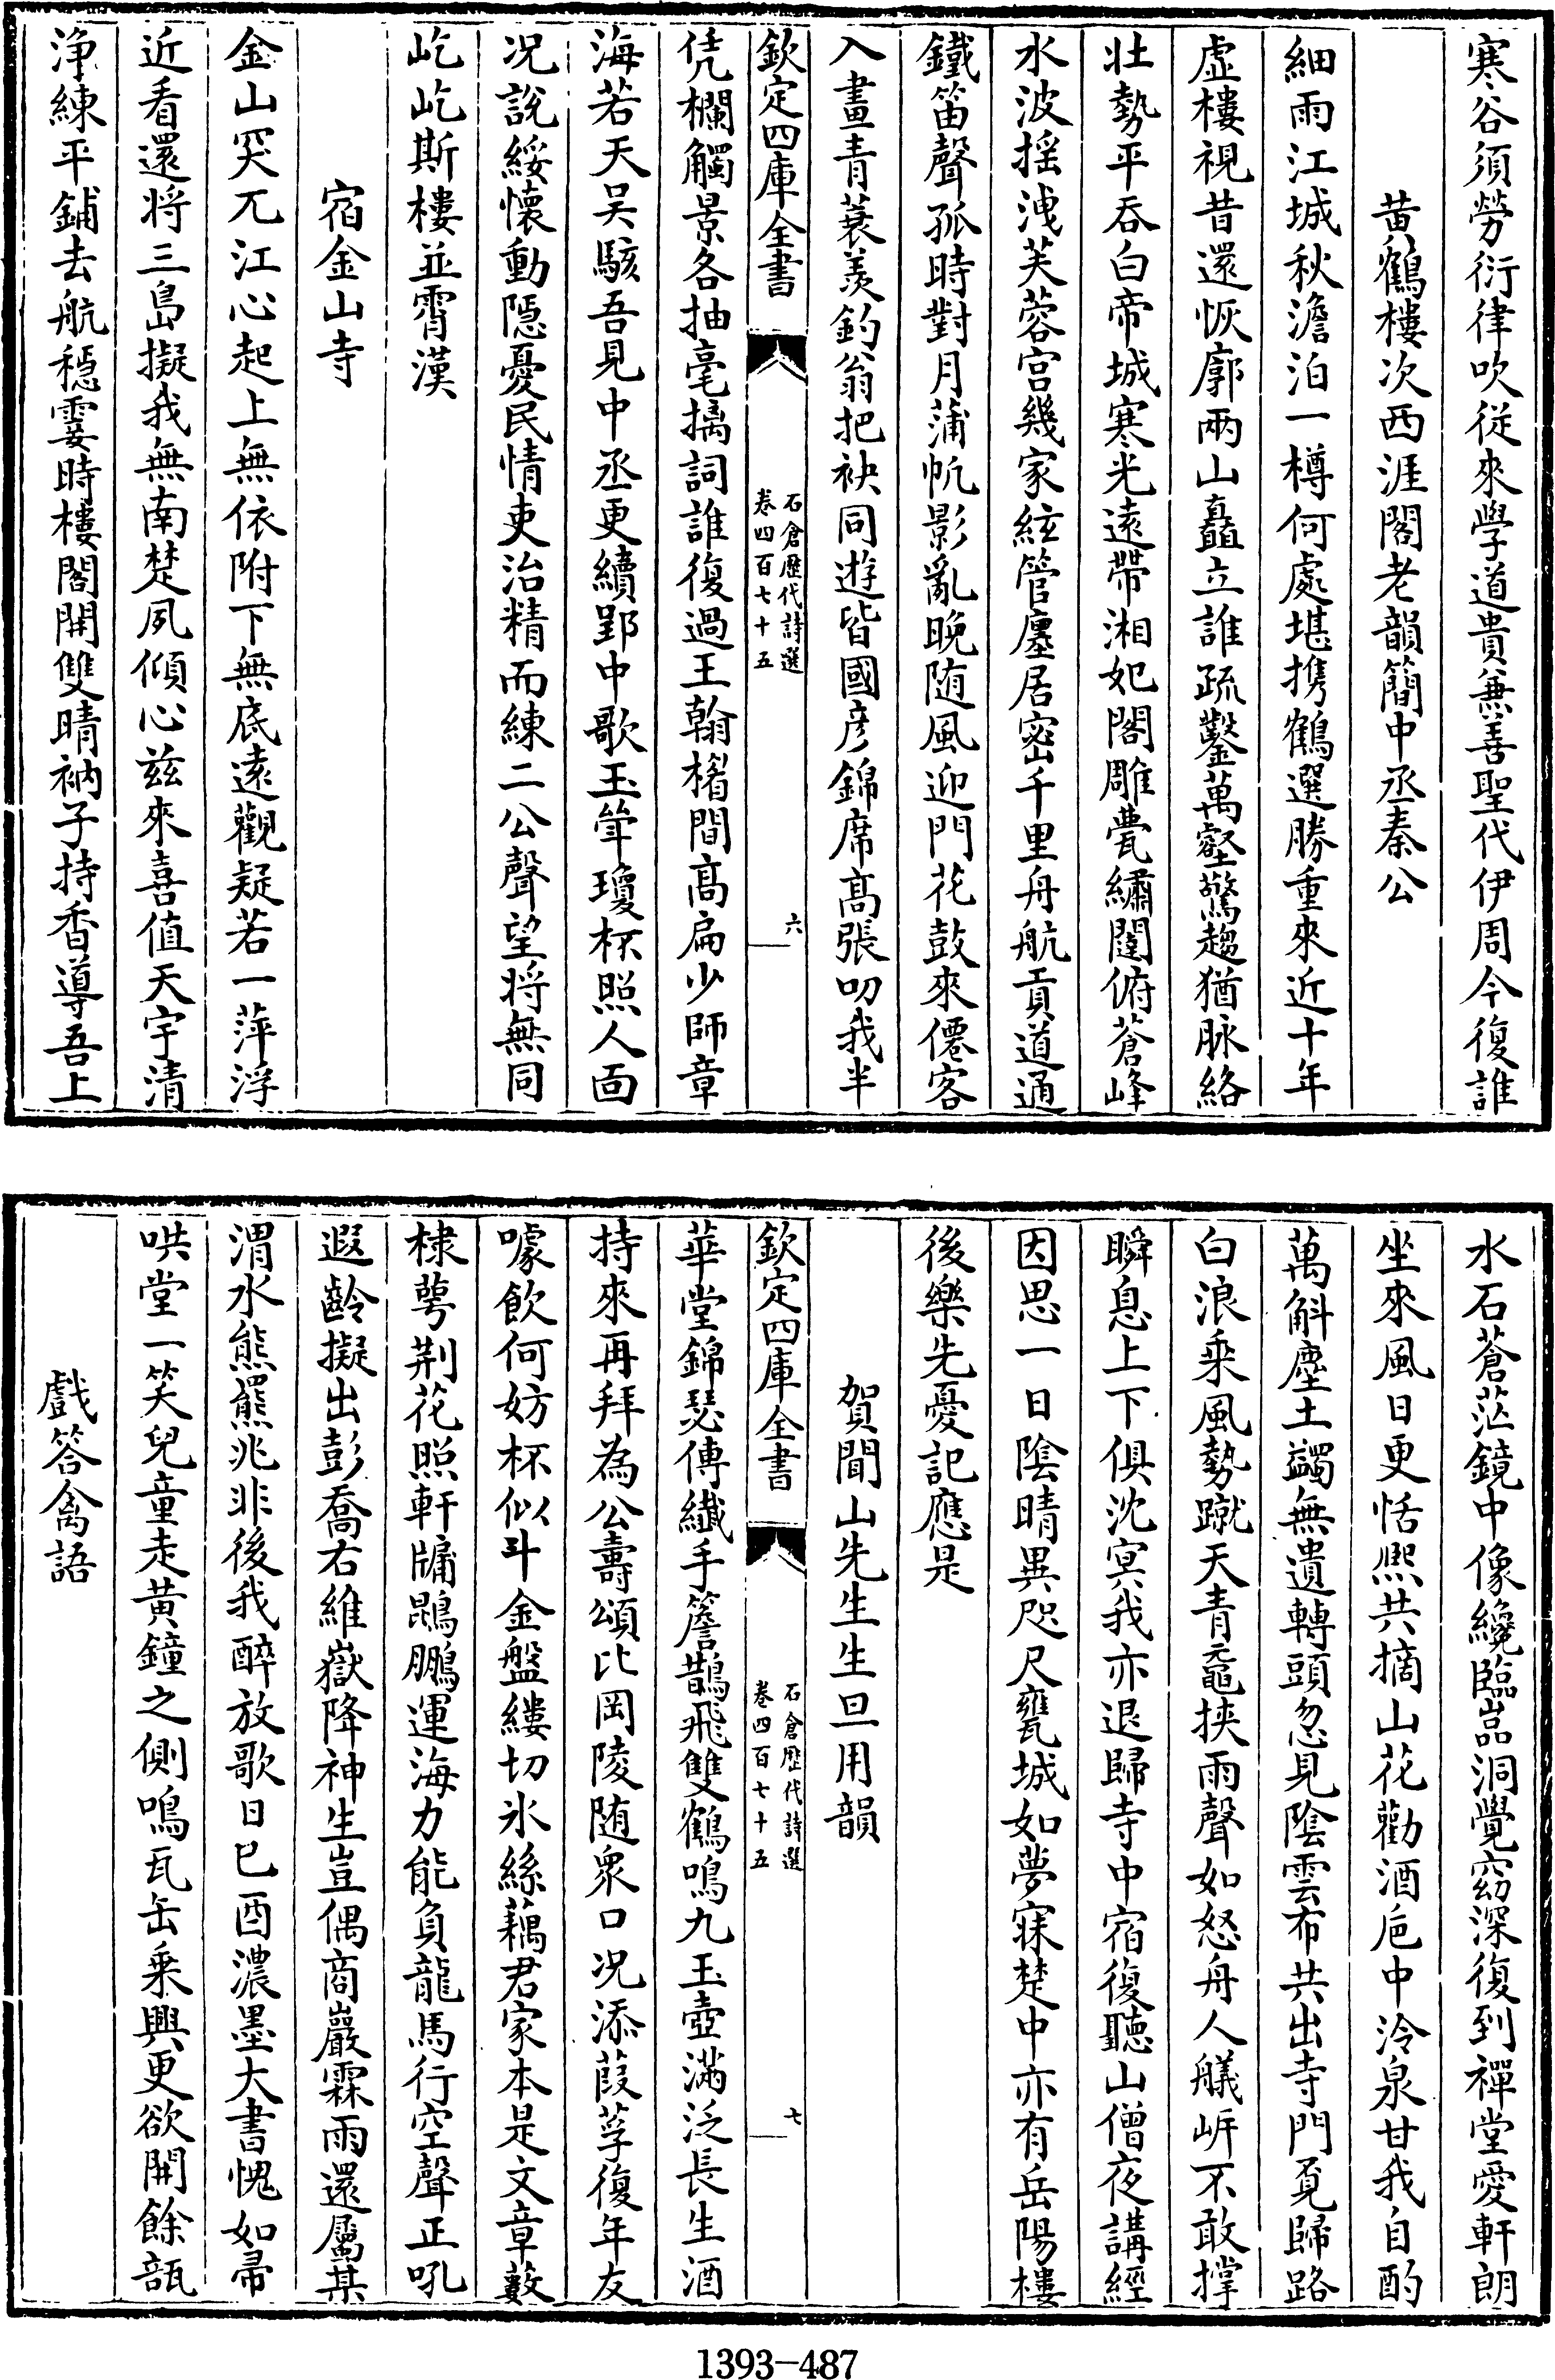 寒谷須勞衍律吹從來學道貴兼善聖代伊周今復誰
黄鶴樓次西涯閣老韻簡中丞秦公
細雨江城秋澹泊一樽何處堪携鶴選勝重來近十年
虚樓視昔還恢廓兩山矗立誰疏鑿萬壑驚趨猶脉絡
壯勢平吞白帝城寒光遠帶湘妃閣雕甍繡闥俯蒼峰
水波揺洩芙蓉宫幾家絃管廛居密千里舟航貢道通
鐵笛聲孤時對月蒲帆影亂晚随風迎門花鼓來僊客
入畫青蓑羡釣翁把袂同遊皆國彦錦席髙張叨我半
欽定四庫全書
石倉歴代詩選
卷四百七十五
六
凭欄觸景各抽毫摛詞誰復過王翰楣間髙扁少師章
海若天吴駭吾見中丞更續郢中歌玉斝瓊杯照人面
况說綏懷動隠憂民情吏治精而練二公聲望将無同
屹屹斯樓並霄漢
宿金山寺
金山突兀江心起上無依附下無底遠觀疑若一萍浮
近看還将三島擬我無南楚夙傾心兹來喜值天宇清
浄練平鋪去航穏霎時樓閣開雙晴衲子持香導吾上
水石蒼茫鏡中像纔臨嵓洞覺窈深復到禪堂愛軒朗
坐來風日更恬熈共摘山花勸酒巵中泠泉甘我自酌
萬斛塵土蠲無遺轉頭忽見陰雲布共出寺門覓歸路
白浪乘風勢蹴天青黿挾雨聲如怒舟人艤岍不敢撑
瞬息上下俱沈冥我亦退歸寺中宿復聽山僧夜講經
因思一日陰晴異咫尺甕城如夢寐楚中亦有岳陽樓
後樂先憂記應是
賀聞山先生生旦用韻
華堂錦瑟傳纎手簷鵲飛雙鶴鳴九玉壺滿泛長生酒
持來再拜為公壽頌比岡陵随衆口况添葭莩復年友
噱飲何妨杯似斗金盤縷切氷絲藕君家本是文章藪
棣萼荆花照軒牖鵾鵬運海力能負龍馬行空聲正吼
遐齡擬出彭喬右維嶽降神生豈偶商巖霖雨還屬某
渭水熊羆兆非後我醉放歌日已酉濃墨大書愧如帚
哄堂一笑兒童走黄鐘之側鳴瓦缶乘興更欲開餘瓿
戲答禽語
欽定四庫全書
石倉歴代詩選
卷四百七十五
七
1393-487